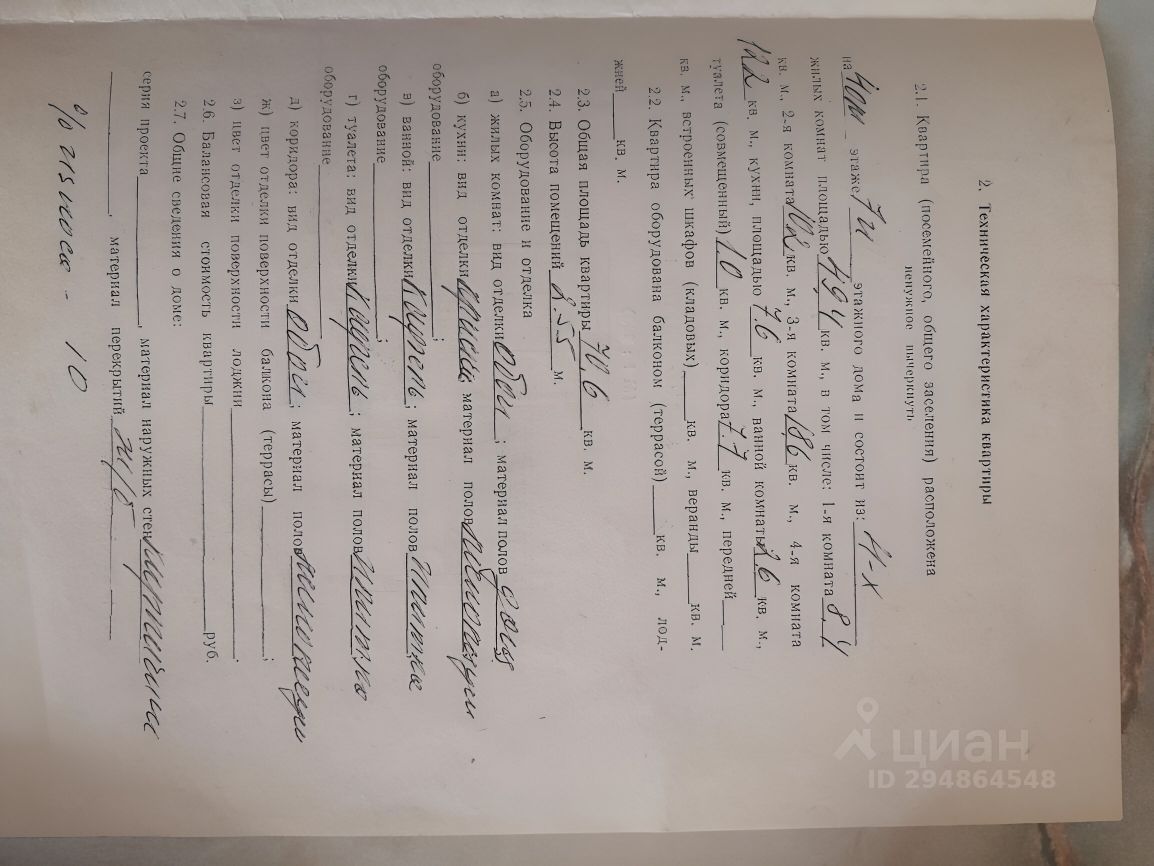 2. Техническая характеристика квартиры
2.1. Квартира (посемейного, общего заселения) расположена
ненужное вычеркнуть
на 4ом этаже 7и этажного дома и состоит из: 4-х
жилых комнат площадью 49,4 кв. м., в том числе: 1-я комната 8,4
кв. м., 2-я комната 10,2 кв. м., 3-я комната 18,6 кв. м., 4-я комната
12,2 кв. м., кухни, площадью 7,6 кв. м., ванной комнаты 2,6 кв. м.,
туалета (совмещенный) 1.0 кв. м., коридора 7.7 кв. м., передней
кв. м., встроенных шкафов (кладовых) кв. м., веранды кв. м.
2.2. Квартира оборудована балконом (террасой) кв. м., лод-
жией кв. м.
2.3. Общая площадь квартиры 70,6 кв. м.
2.4. Высота помещений 2.55 м.
2.5. Оборудование и отделка
а) жилых комнат: вид отделки обои ; материал полов доска
б) кухни: вид отделки ; материал полов линолеум
оборудование ;
в) ванной: вид отделки ; материал полов плитка
оборудование ;
г) туалета: вид отделки ; материал полов плитка
оборудование
д) коридора: вид отделки обои ; материал полов линолеум
ж) цвет отделки поверхности балкона (террасы) ;
з) цвет отделки поверхности лоджии .
2.6. Балансовая стоимость квартиры руб.
2.7. Общие сведения о доме:
серия проекта , материал наружных стен кирпичные
, материал перекрытий ж/б
% износа - 10
циан
ID 294864548